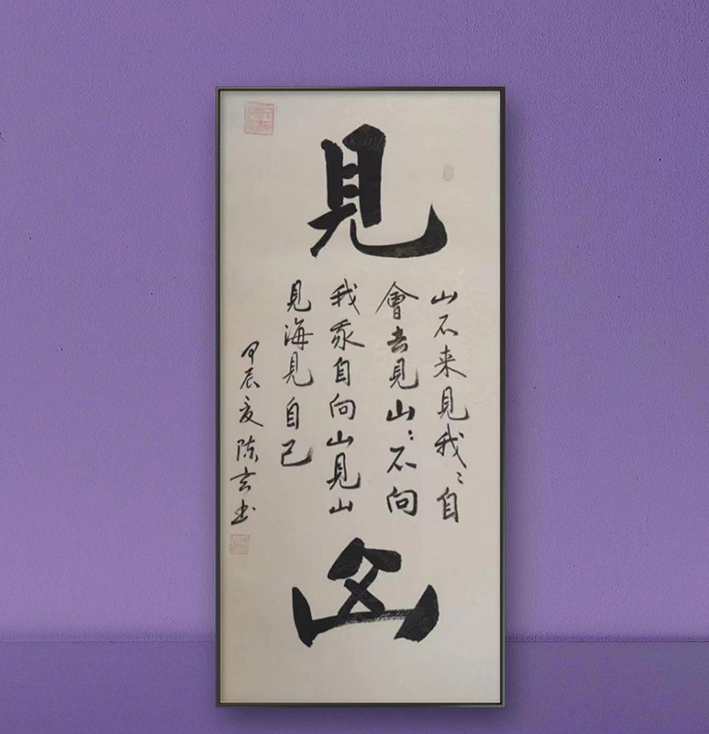 見
山不来見我々自
會去見山々不向
我來自向山見山
見海見自己
甲辰夏陈玄书
山